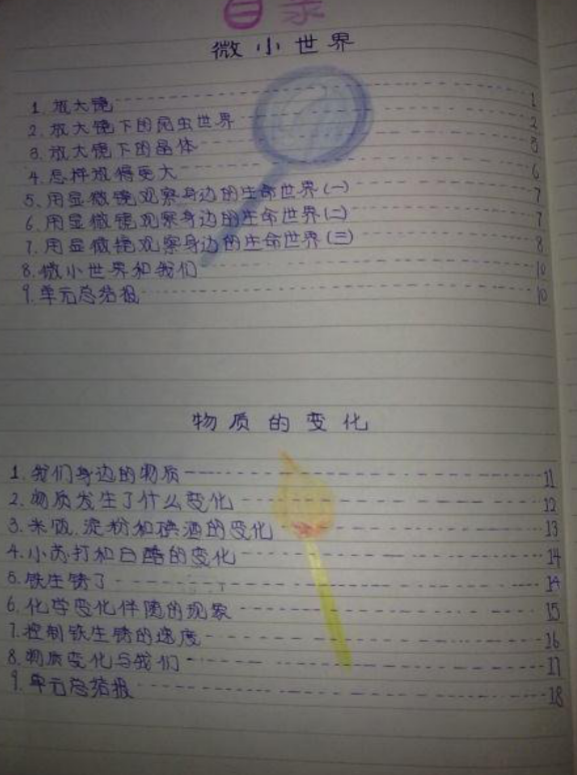 目录
微小世界
1. 放大镜 1
2. 放大镜下的昆虫世界 2
3. 放大镜下的晶体 5
4. 怎样放得更大 6
5. 用显微镜观察身边的生命世界(一) 7
6. 用显微镜观察身边的生命世界(二) 7
7. 用显微镜观察身边的生命世界(三) 8
8. 微小世界和我们 10
9. 单元总结报 10
物质的变化
1. 我们身边的物质 11
2. 物质发生了什么变化 12
3. 米饭、淀粉和碘酒的变化 13
4. 小苏打和白醋的变化 14
5. 铁生锈了 14
6. 化学变化伴随的现象 15
7. 控制铁生锈的速度 16
8. 物质变化与我们 17
9. 单元总结报 18